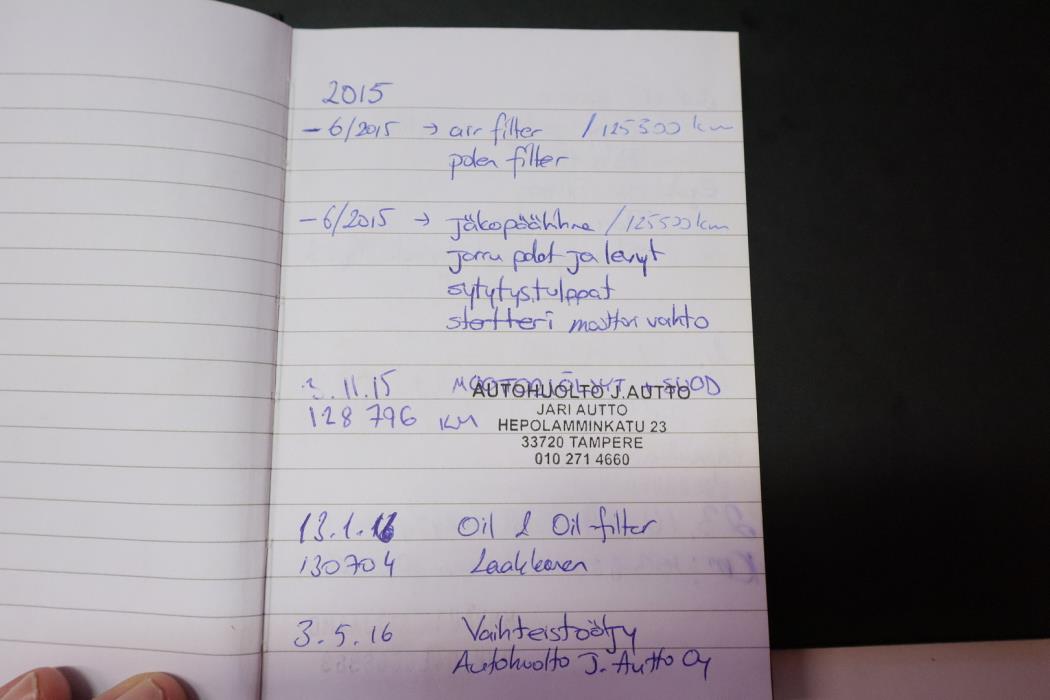 2015
- 6/2015 → air filter /125300 km
polen filter
- 6/2015 → jäkopäähihna /125500 km
jarru palat ja levyt
sytytystulppat
startteri moottori vaihto
3.11.15 MOOTTORIÖLJYT + SUOD
AUTOHUOLTO J.AUTTO
128 796 KM
JARI AUTTO
HEPOLAMMINKATU 23
33720 TAMPERE
010 271 4660
13.1.16 Oil & Oil filter
130704 Laakkonen
3.5.16 Vaihteistoöljy
Autohuolto J. Autto Oy